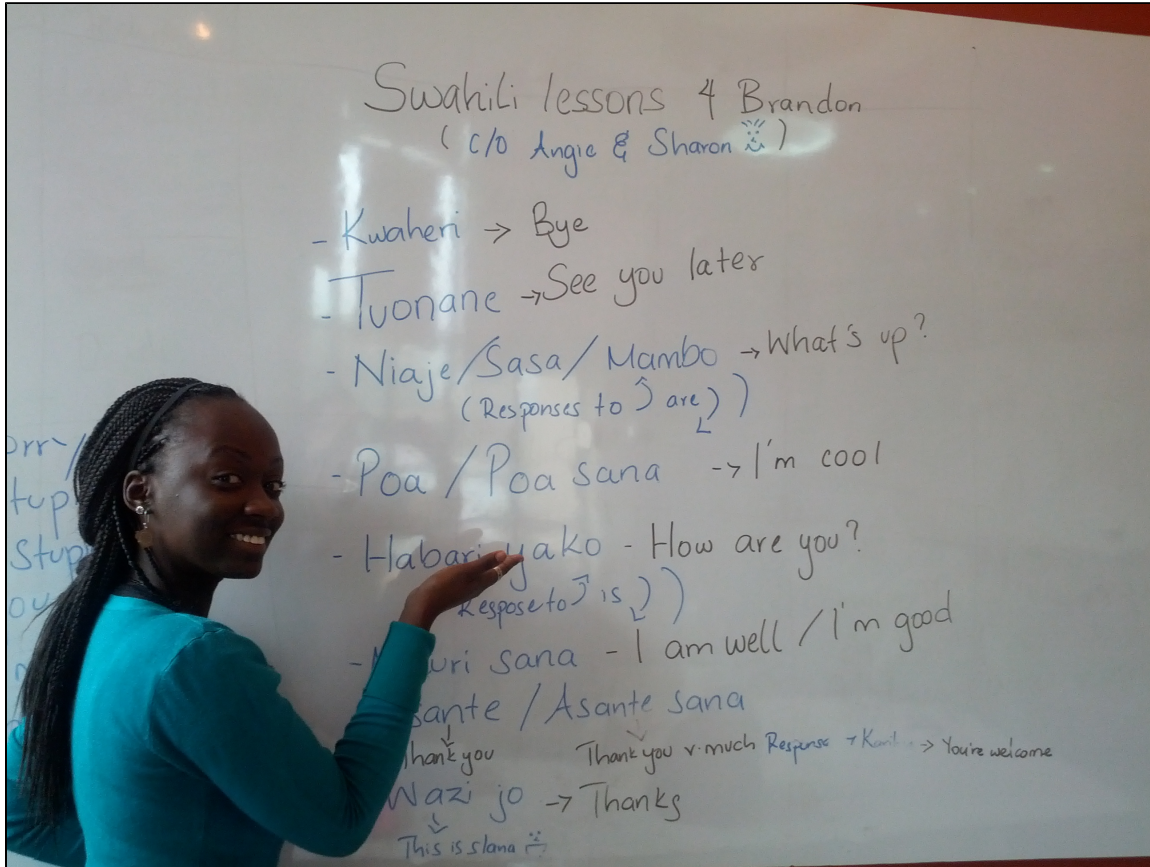 Swahili lessons 4 Brandon
( C/O Angie & Sharon )
- Kwaheri → Bye
- Tuonane → See you later
- Niaje/Sasa/Mambo → What's up?
(Responses to are )
- Poa / Poa sana → I'm cool
- Habari yako - How are you?
Respose to is )
uri sana - I am well / I'm good
sante / Asante sana
Thank you Thank you v. much Response → → You're welcome
Wazi jo → Thanks
This is slang
orr
tup
Stup
ou